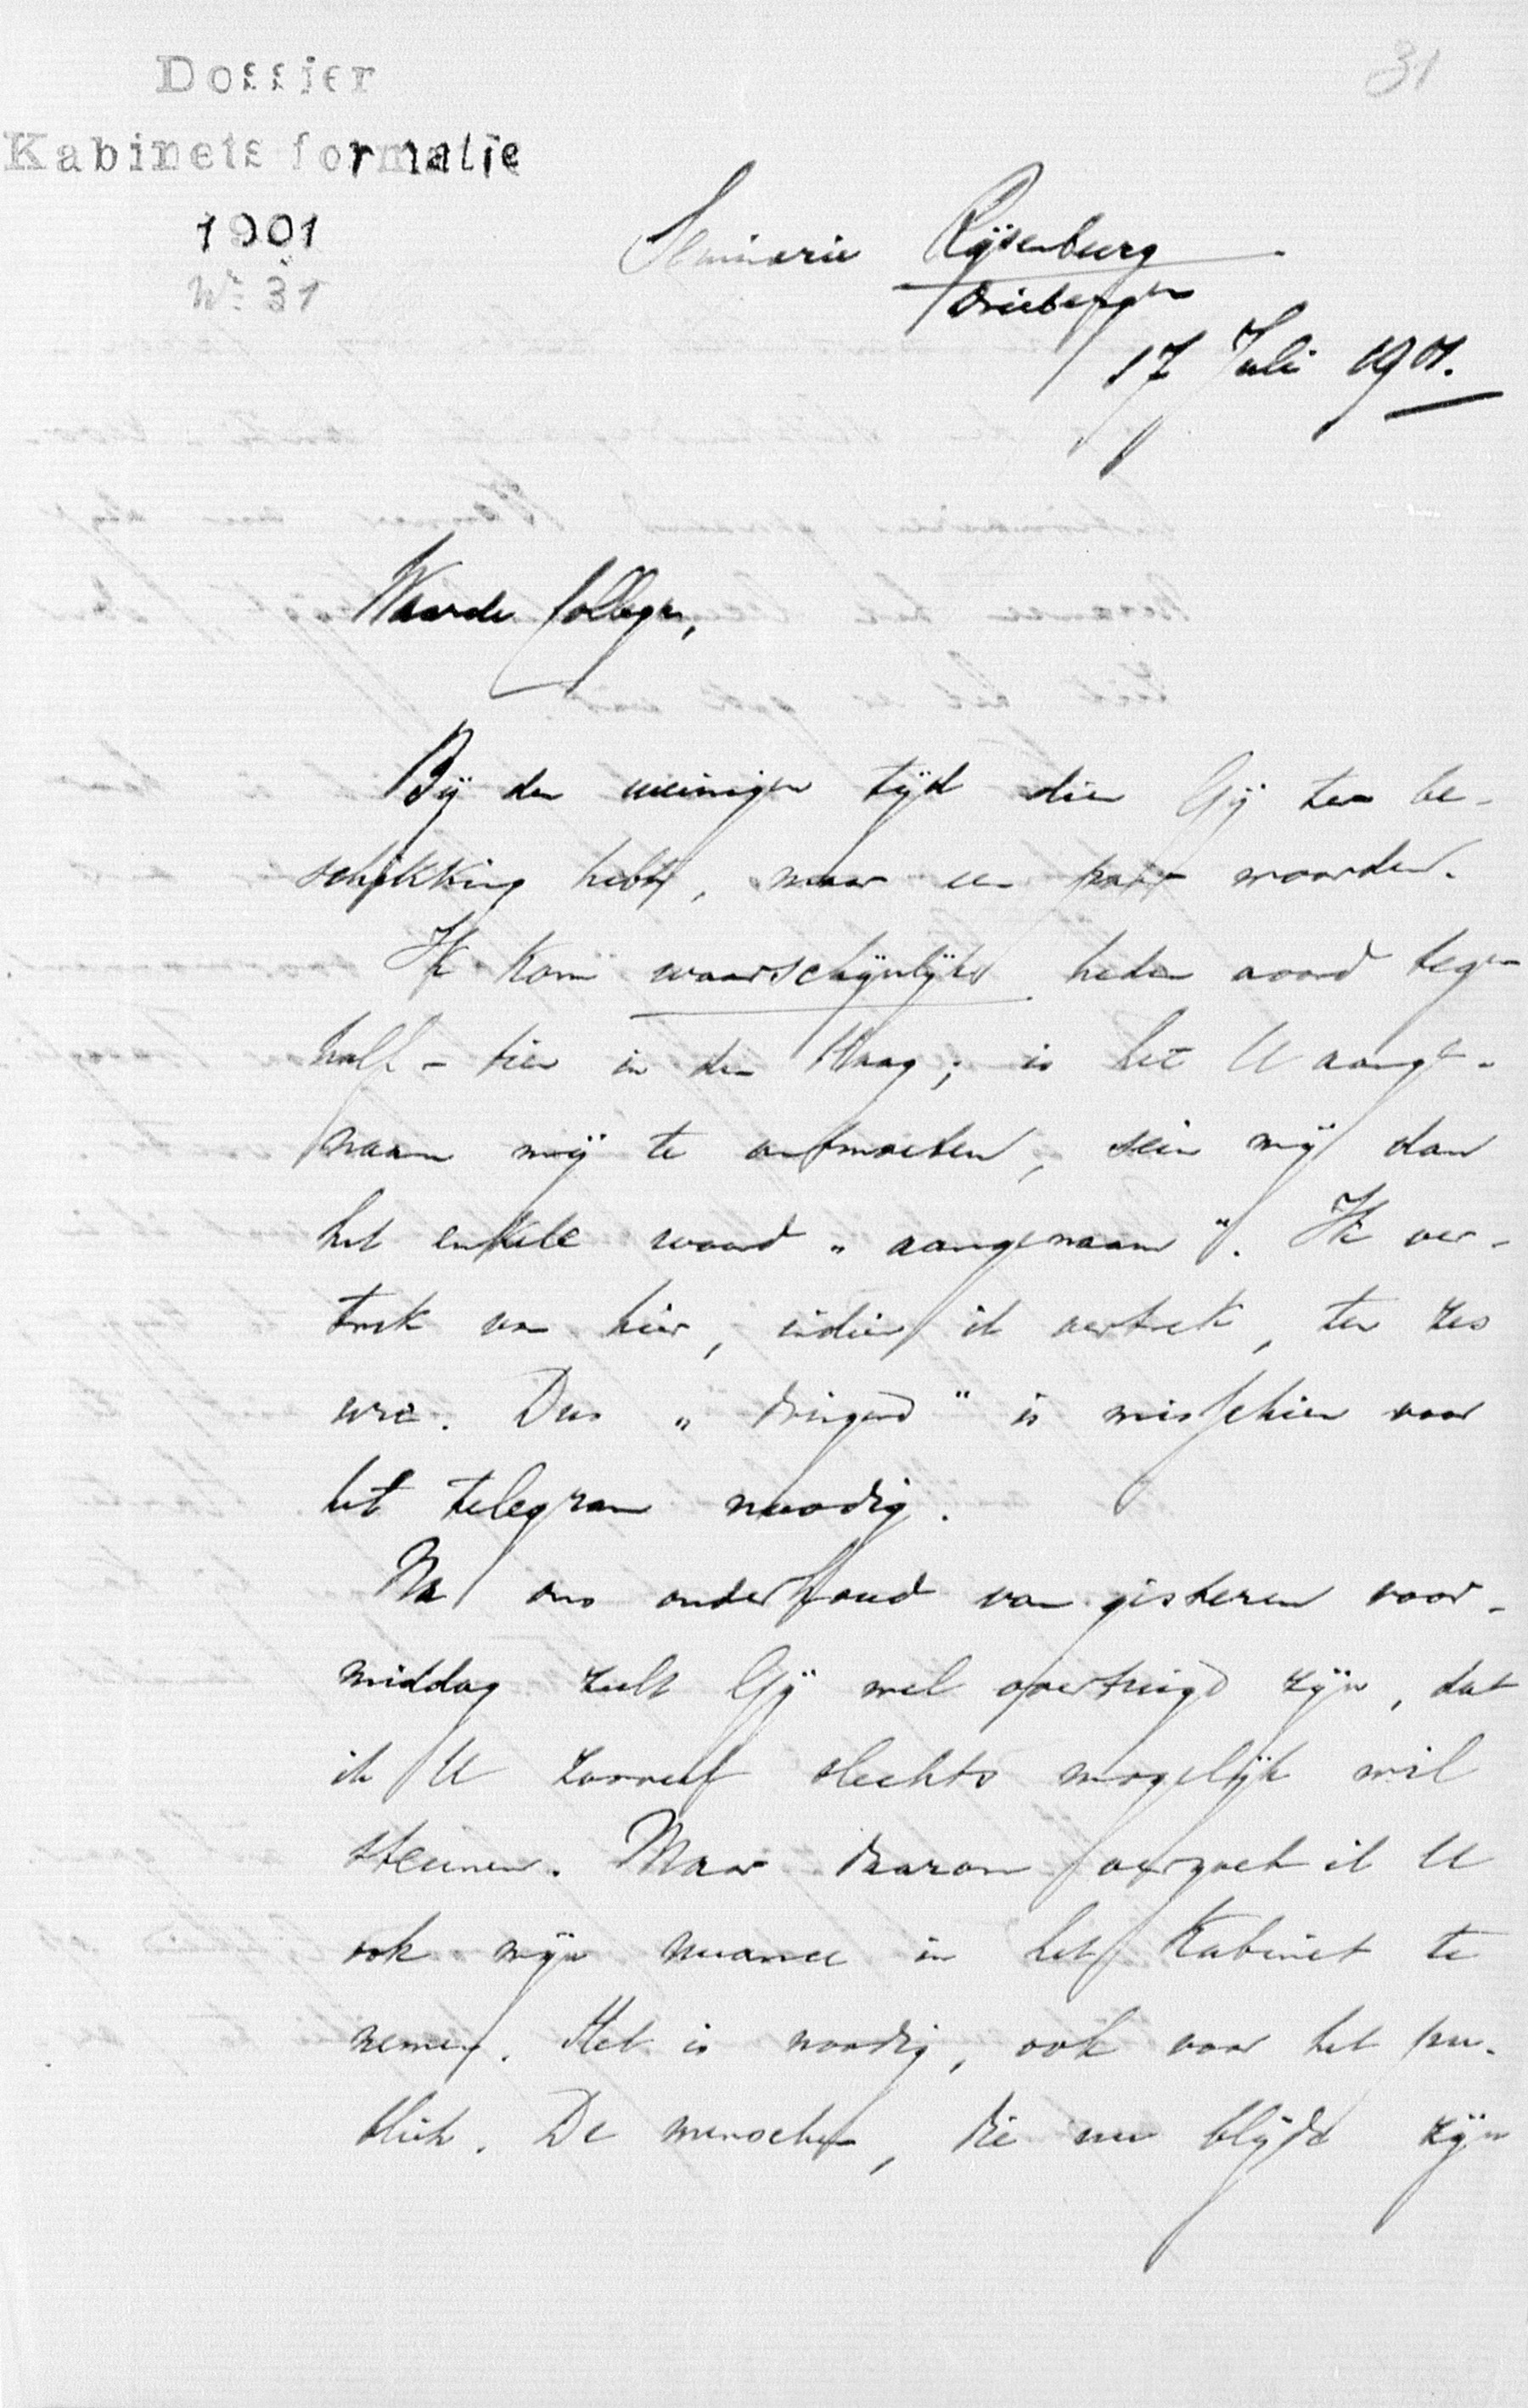 31
Dossier
Kabinetsformatie
1901
No 31
Seminarie Rijsenburg
Driebergen
17 Juli 1901.
Waarde Collega,
Bij den weinigen tijd dien Gij ter be-
schikking hebt, maar een paar woorden.
Ik kom waarschijnlijk heden avond tegen
half-tien in den Haag; is het U aange-
naam mij te ontmoeten, sein mij dan
het enkele woord „aangenaam". Ik ver-
trek van hier, indien ik vertrek, ten zes
ure. Dus „dringend" is misschien voor
het telegram noodig.
Na ons onderhoud van gisteren voor-
middag zult Gij wel overtuigd zijn, dat
ik U zooveel slechts mogelijk wil
steunen. Maar daarom verzoek ik U
ook mijn nuance in het Kabinet te
nemen. Het is noodig, ook voor het pu-
bliek. De menschen, die nu blijde zijn